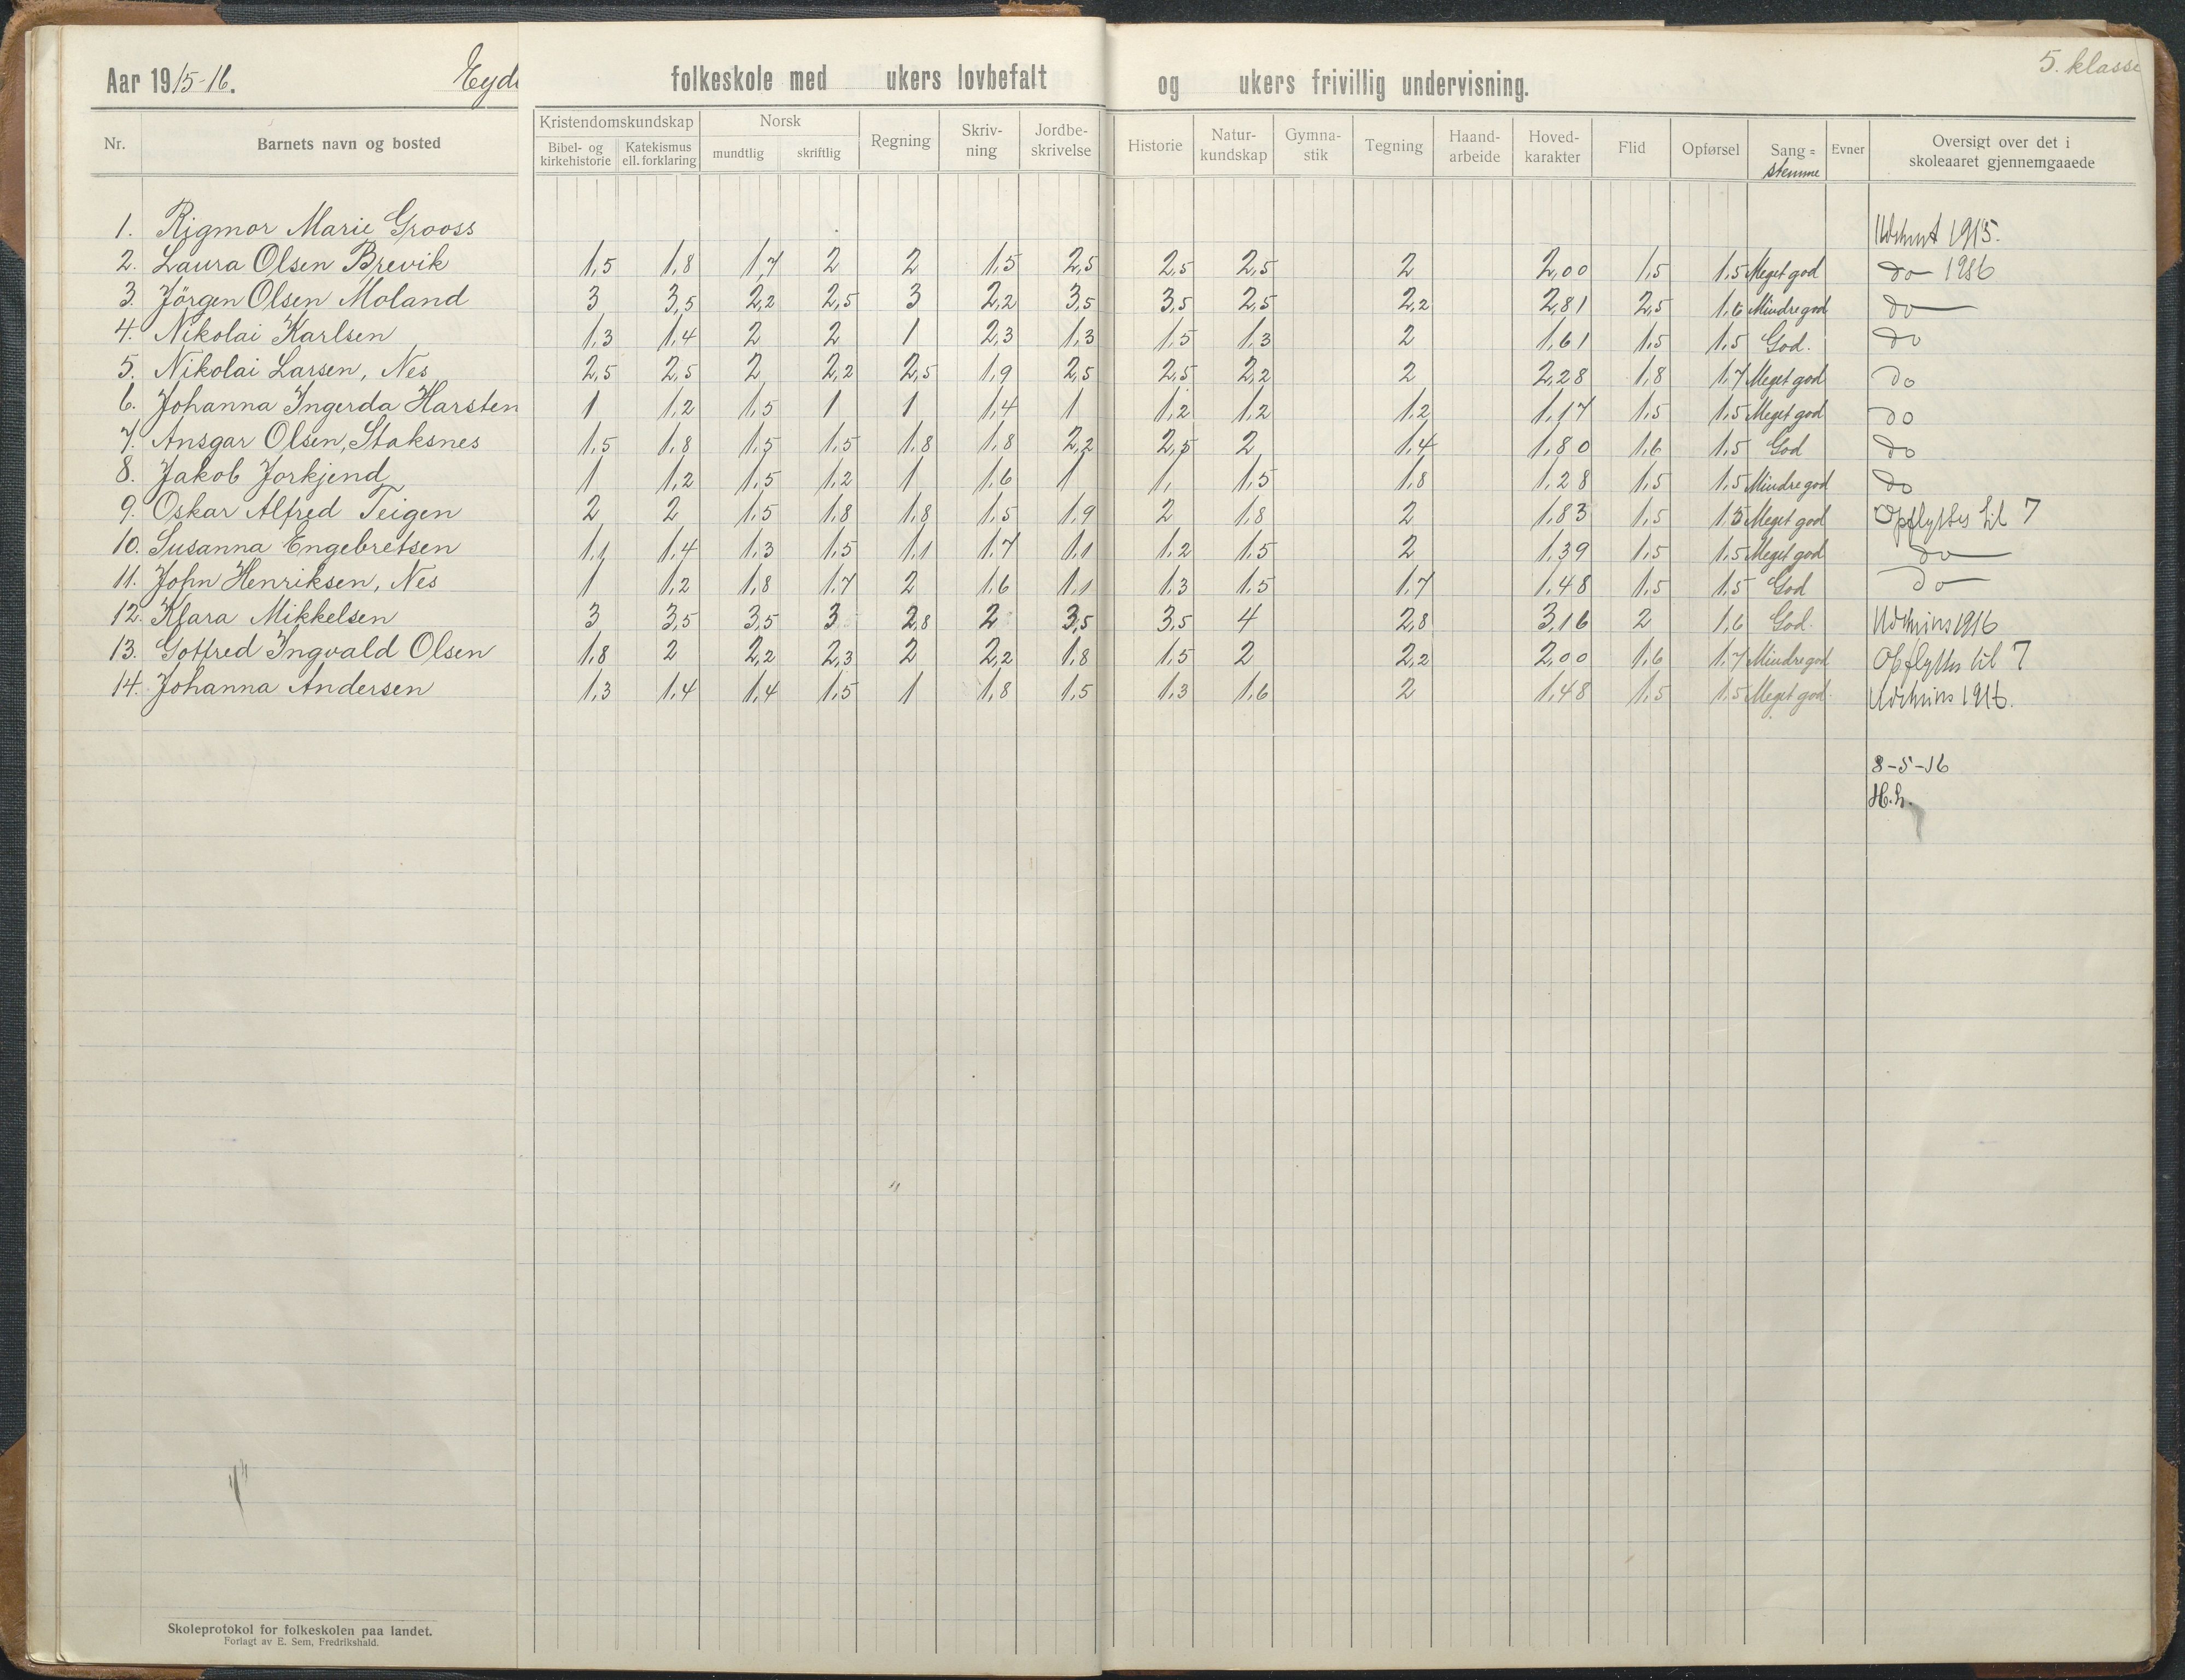 5. klasse
Aar 1915-16. Eyde folkeskole med ukers lovbefalt og ukers frivillig undervisning.
Nr. Barnets navn og bosted Kristendomskundskap Bibel- og kirkehistorie Katekismus ell. forklaring Norsk mundtlig skriftlig Regning Skriv-ning Jordbe-skrivelse Historie Natur-kundskap Gymna-stik Tegning Haand-arbeide Hoved-karakter Flid Opførsel Sang= stemme Evner Oversigt over det i skoleaaret gjennemgaaede
1. Rigmor Marie Grooss 1915.
2. Laura Olsen Brevik 1,5 1,8 1,7 2 2 1,5 2,5 2,5 2,5 2 2,00 1,5 1,5 Meget god do 1916
3. Jörgen Olsen Moland 3 3,5 2,2 2,5 3 2,2 3,5 3,5 2,5 2,2 2,81 2,5 1,6 Mindre god do
4. Nikolai Karlsen 1,3 1,4 2 2 1 2,3 1,3 1,5 1,3 2 1,61 1,5 1,5 God. do
5. Nikolai Larsen, Nes 2,5 2,5 2 2,2 2,5 1,9 2,5 2,5 2,2 2 2,28 1,8 1,7 Meget god do
6. Johanna Ingerda Harsten 1 1,2 1,5 1 1 1,4 1 1,2 1,2 1,2 1,17 1,5 1,5 Meget god do
7. Ansgar Olsen, Staksnes 1,5 1,8 1,5 1,5 1,8 1,8 2,2 2,5 2 1,4 1,80 1,6 1,5 God do
8. Jakob Jorkjend 1 1,2 1,5 1,2 1 1,6 1 1, 1,5 1,8 1,28 1,5 1,5 Mindre god do
9. Oskar Alfred Teigen 2 2 1,5 1,8 1,8 1,5 1,9 2 1,8 2 1,83 1,5 1,5 Meget god Opflyttes til 7
10. Susanna Engebretsen 1,1 1,4 1,3 1,5 1,1 1,7 1,1 1,2 1,5 2 1,39 1,5 1,5 Meget god do
11. John Henriksen, Nes 1 1,2 1,8 1,7 2 1,6 1,1 1,3 1,5 1,7 1,48 1,5 1,5 God do
12. Klara Mikkelsen 3 3,5 3,5 3 2,8 2 3,5 3,5 4 2,8 3,16 2 1,6 God. 1916
13. Gotfred Ingvald Olsen 1,8 2 2,2 2,3 2 2,2 1,8 1,5 2 2,2 2,00 1,6 1,7 Mindre god Opflyttes til 7
14. Johanna Andersen 1,3 1,4 1,4 1,5 1 1,8 1,5 1,3 1,6 2 1,48 1,5 1,5 Meget god. 1916.
8-5-16
Skoleprotokol for folkeskolen paa landet.
Forlagt av E. Sem, Fredrikshald.